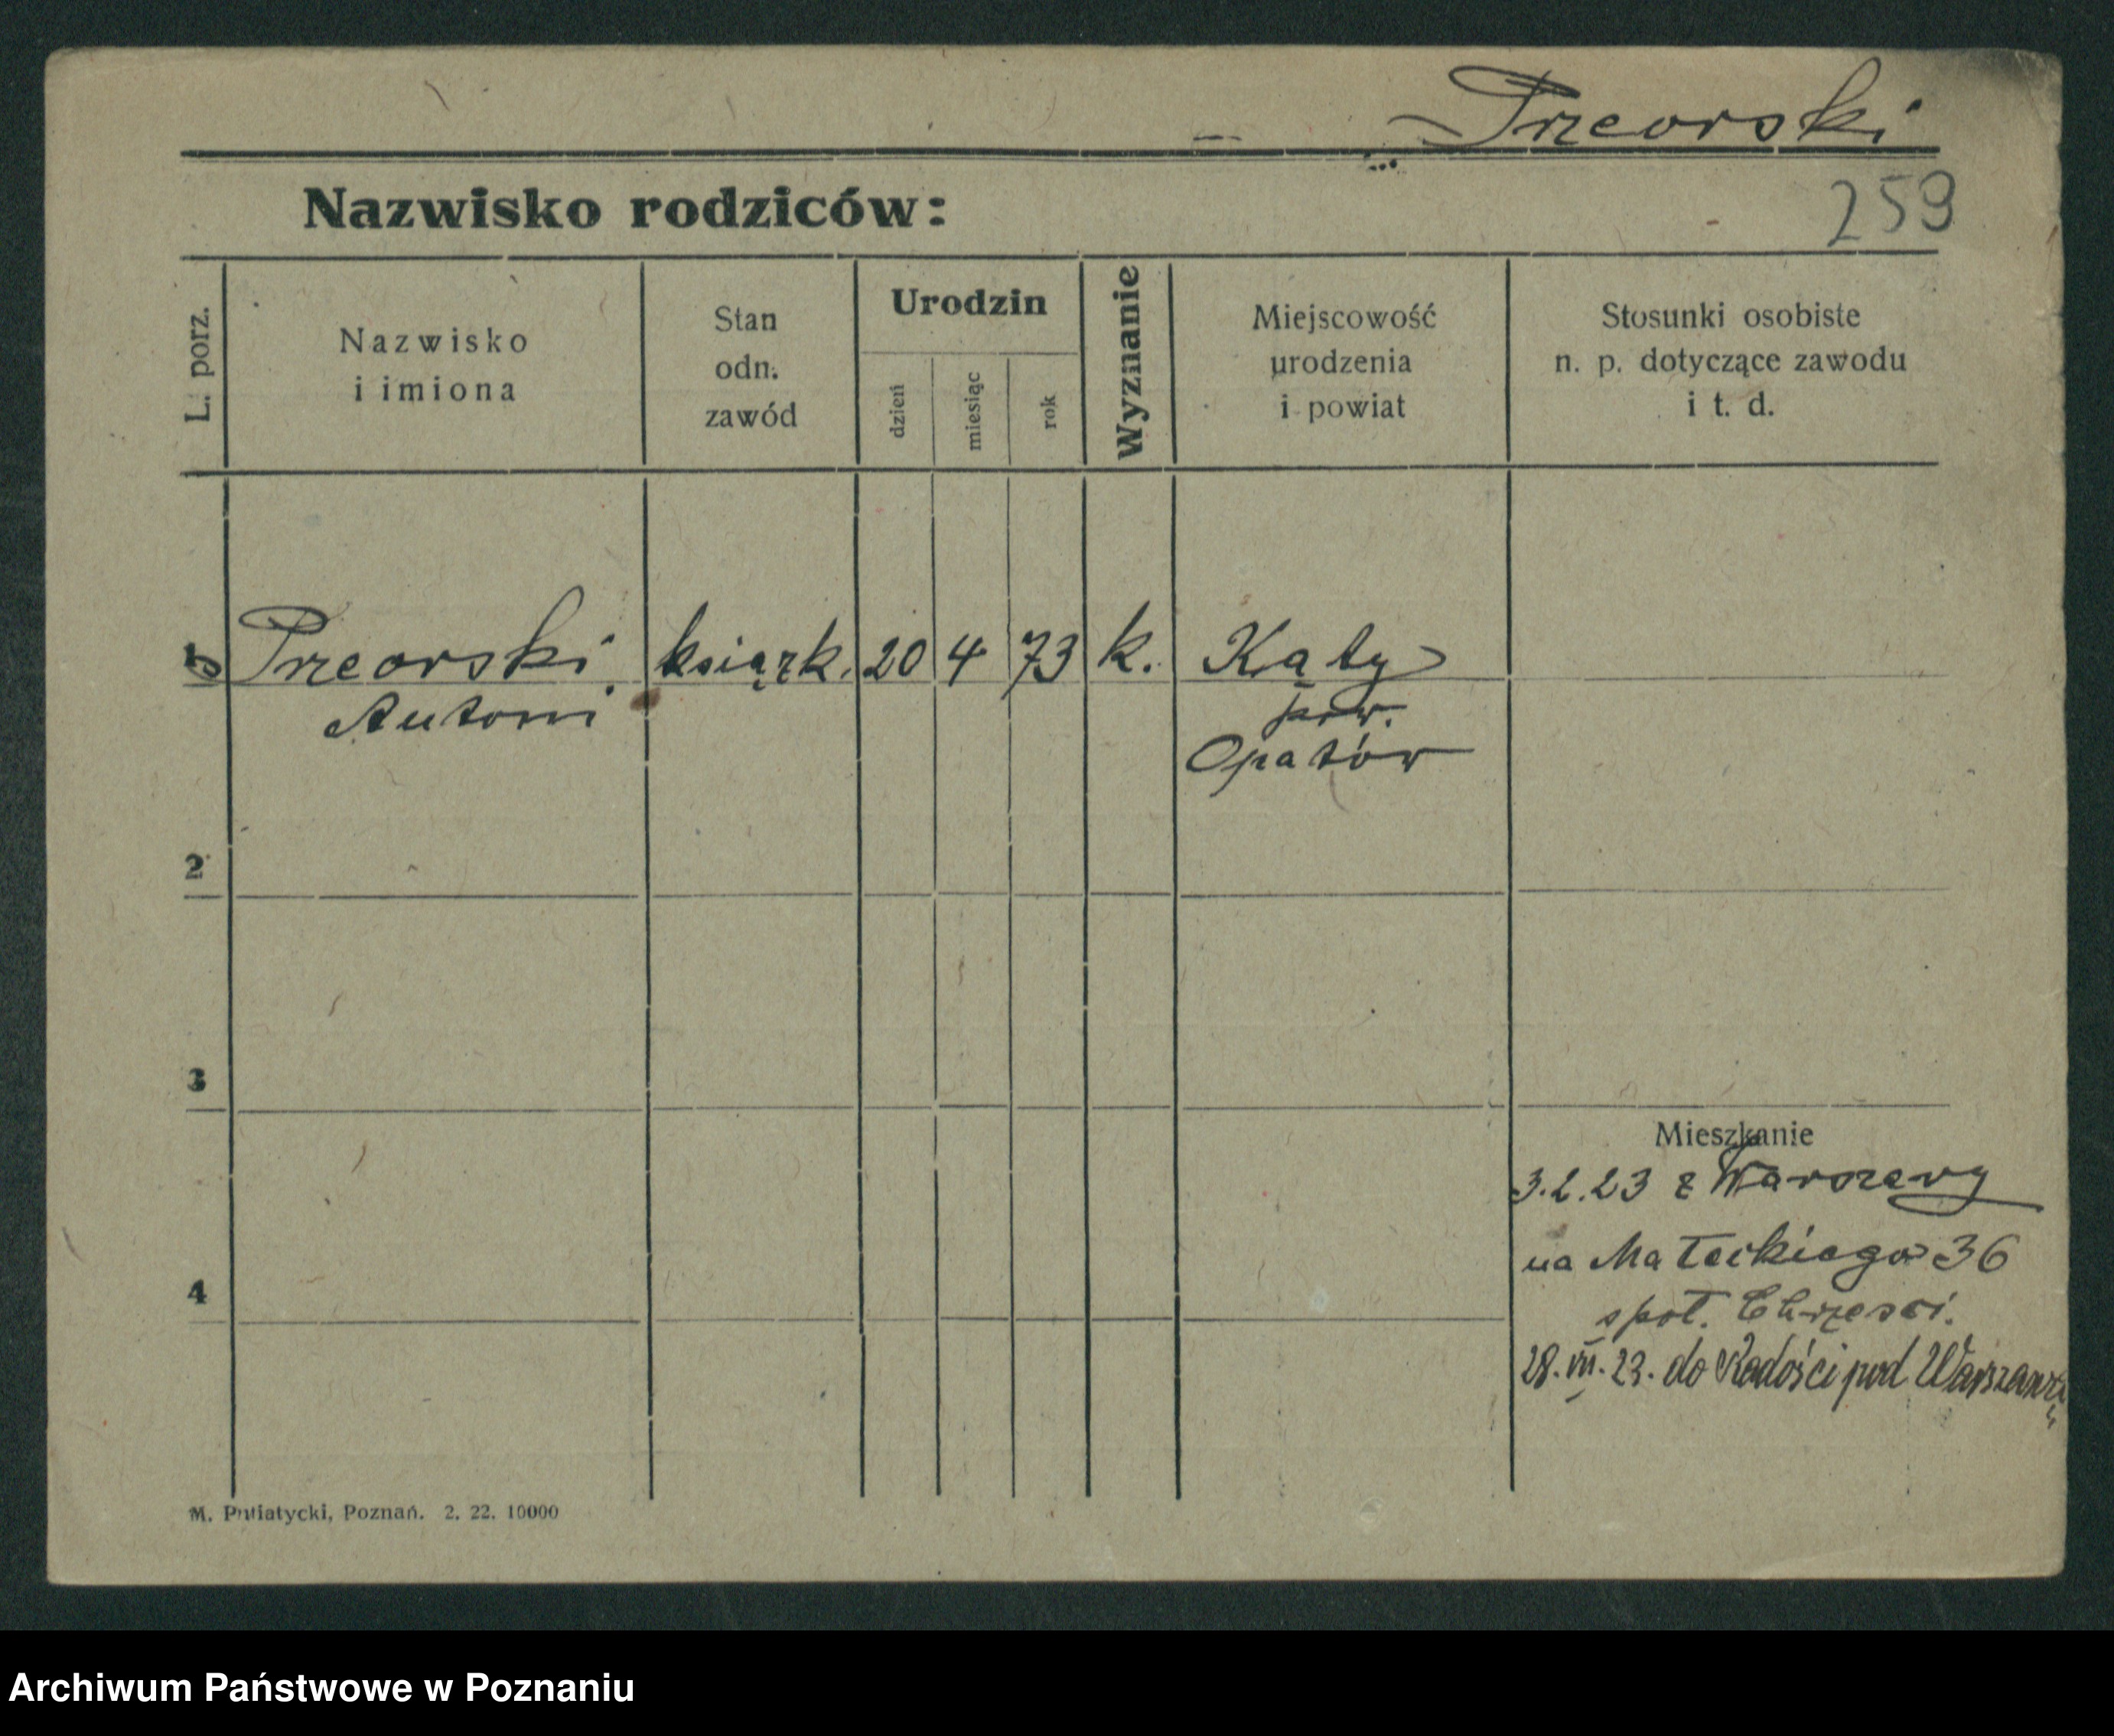 Przeorski
Nazwisko rodziców:
259
L. porz.
Nazwisko
i imiona
Stan
odn.
zawód
Urodzin
dzień
miesiąc
rok
Wyznanie
Miejscowość
urodzenia
i powiat
Stosunki osobiste
n. p. dotyczące zawodu
i t. d.
1 Przeorski książk. 20 4 73 k. Kąty
Antoni pow.
Opatów
2
3
Mieszkanie
3.2.23 z Warszawy
na Małeckiego 36
4
społ. Chrześci.
28.VII.23. do Radości pod Warszawą
M. Putiatycki, Poznań. 2. 22. 10000
Archiwum Państwowe w Poznaniu